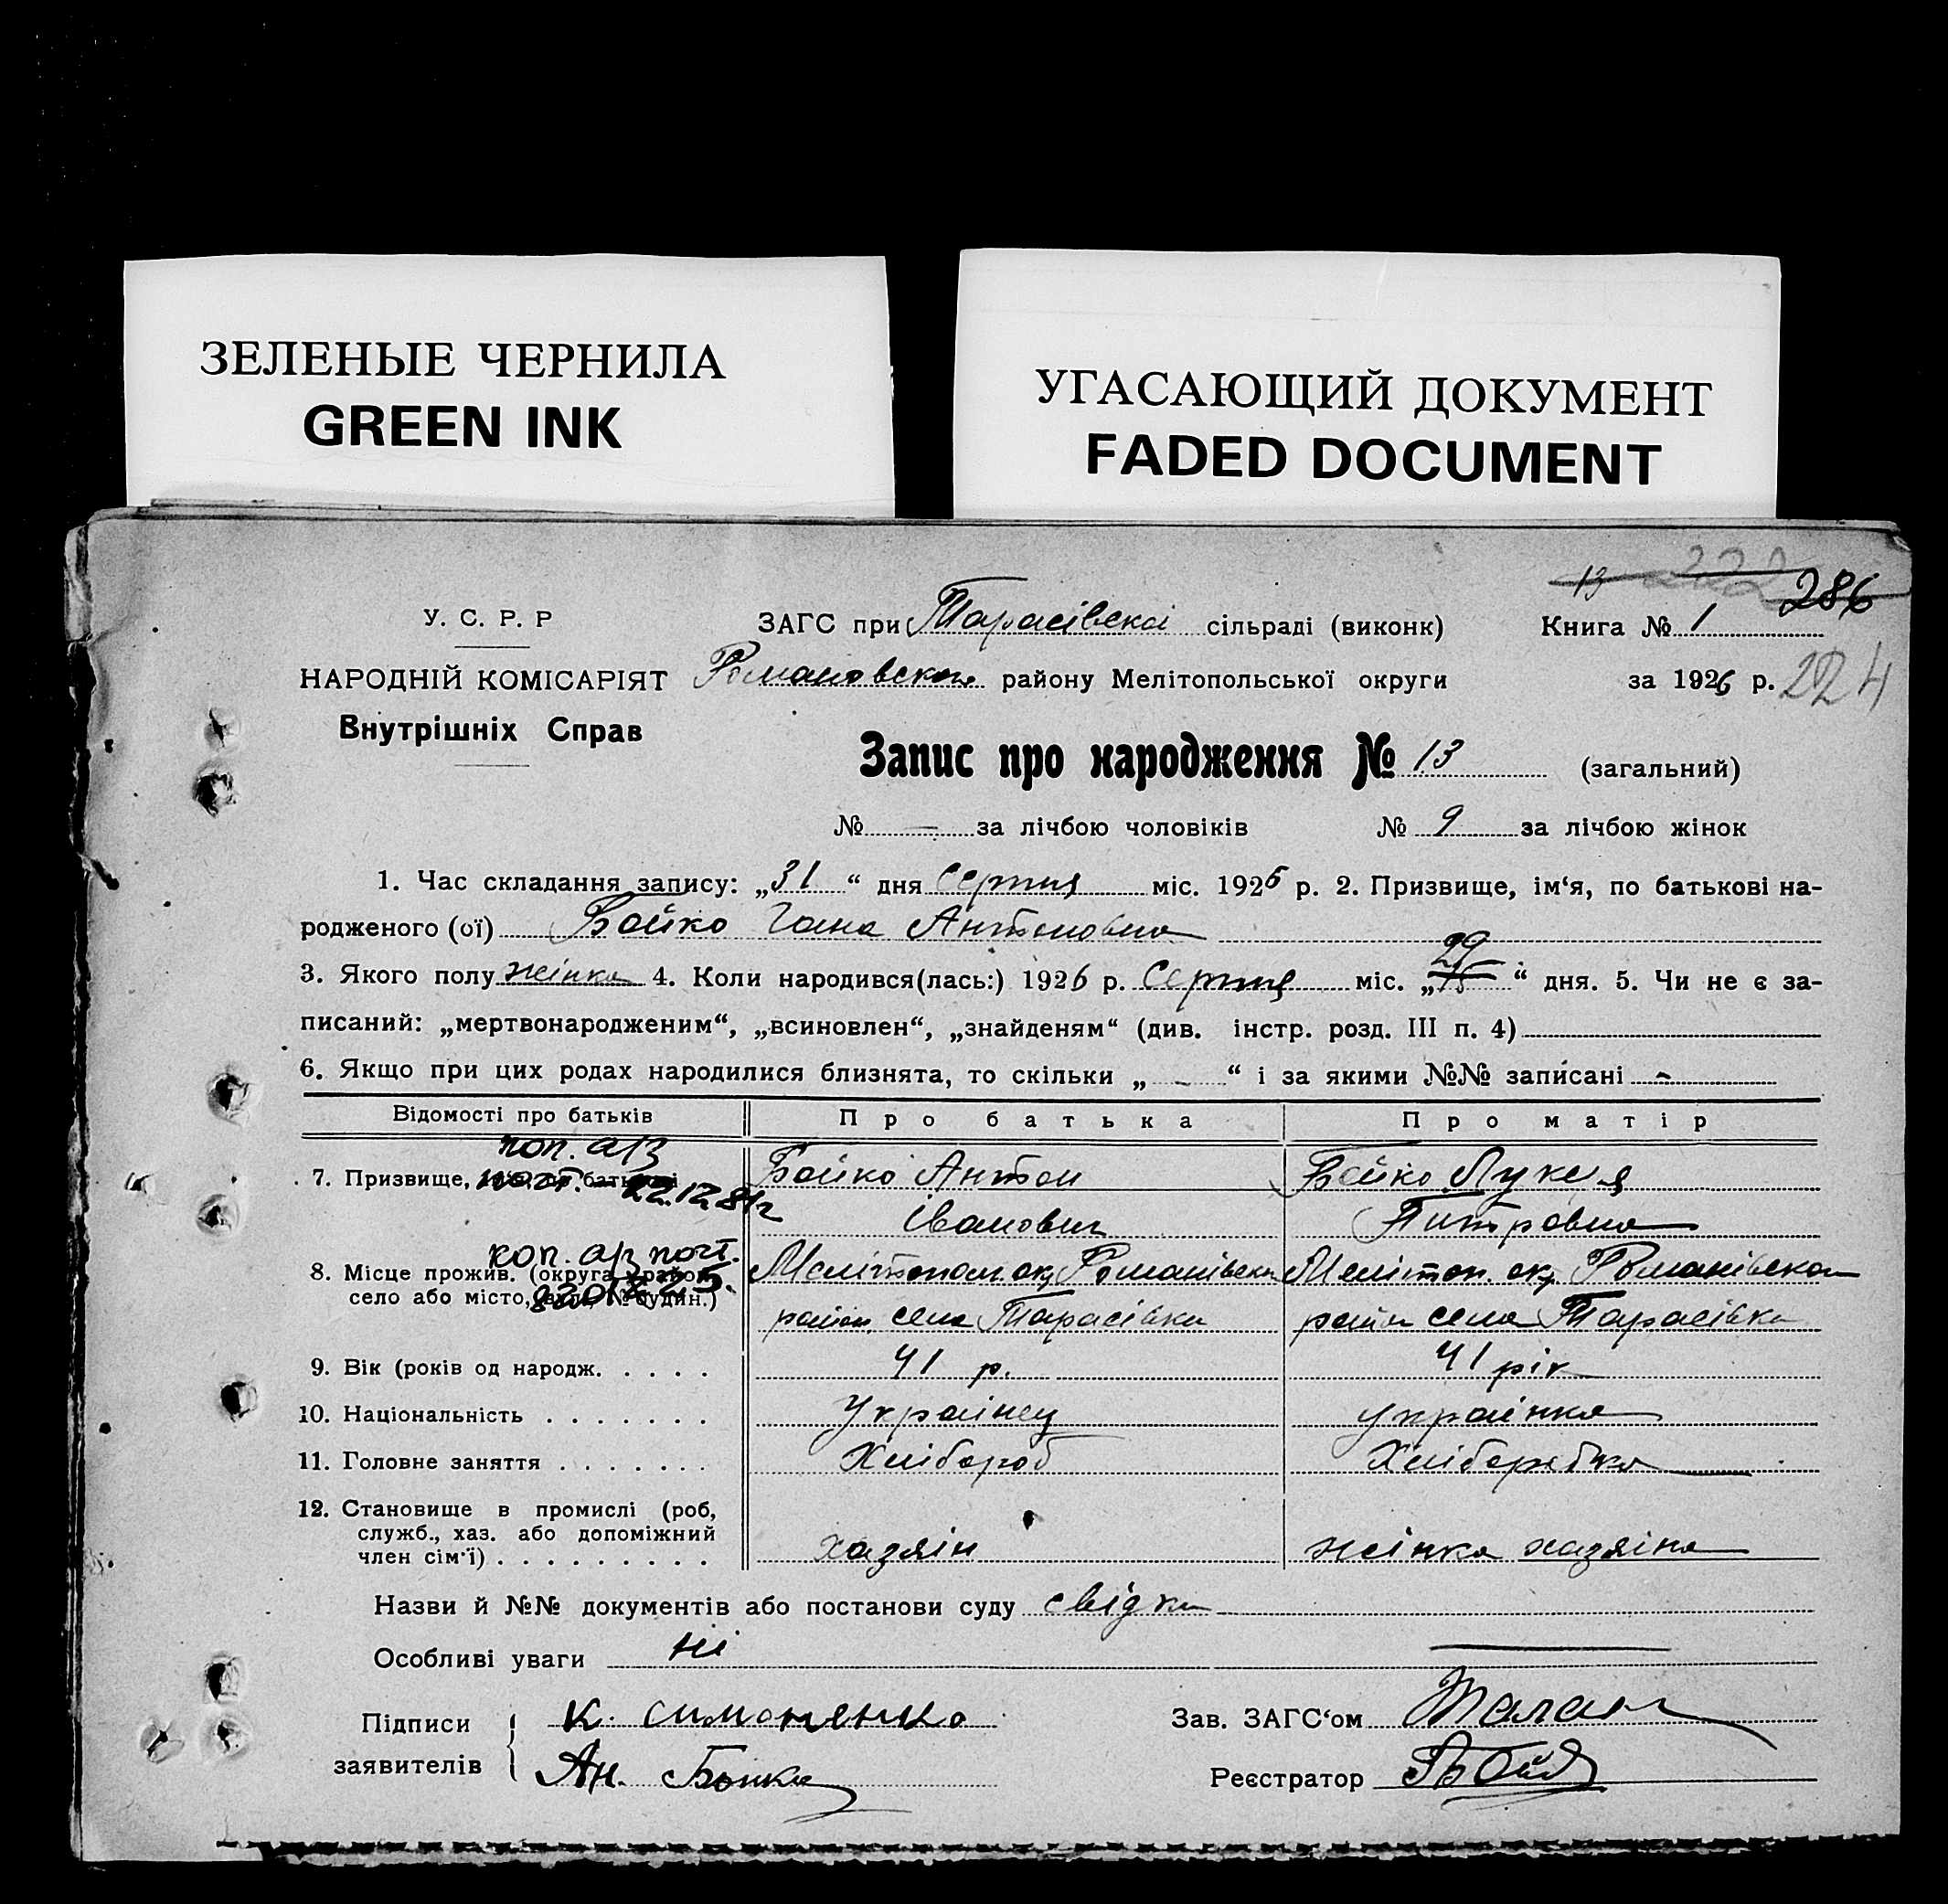 ЗЕЛЕНЫЕ ЧЕРНИЛА
GREEN INK
УГАСАЮЩИЙ ДОКУМЕНТ
FADED DOCUMENT
13 222 286
У. С. Р. Р
ЗАГС при Тарасівскій сільраді (виконк) Книга № 1
НАРОДНІЙ КОМІСАРІЯТ Романовского району Мелітопольської округи за 1926 р. 224
Внутрішніх Справ
Запис про народження № 13 (загальний)
№ — за лічбою чоловіків № 9 за лічбою жінок
1. Час складання запису: „31“ дня серпня міс. 1926 р. 2. Призвище, ім‘я, по батькові на-
родженого (ої) Бойко Гана Антоновна
3. Якого полу жінка 4. Коли народився(лась:) 1926 р. Серпня міс. „29“ дня. 5. Чи не є за-
писаний: „мертвонародженим“, „всиновлен“, „знайденям“ (див. інстр. розд. III п. 4)
6. Якщо при цих родах народилися близнята, то скільки „ - “ і за якими №№ записані -
Відомості про батьків Про батька Про матір
7. Призвище, Бойко Антон Бойко Лукія
22.12.81г Іванович Питровна
8. Місце прожив. (округа, район, Мелітопол. окр Романівска Мелітоп. окр. Романівского
село або місто, будин.) район. села Тарасівки район села Тарасівки
9. Вік (років од народж. . . . . 41 р. 41 рік
10. Національність . . . . . . . Українец українка
11. Головне заняття . . . . . . . Хлібороб Хліборобка
12. Становище в промислі (роб,
служб., хаз. або допоміжний
член сім‘ї) . . . . . . . . . хазяін жінка хазяіна
Назви й №№ документів або постанови суду свідки
Особливі уваги ні
Підписи К. симоненко Зав. ЗАГС‘ом
заявителів Ан. Бойко Реєстратор